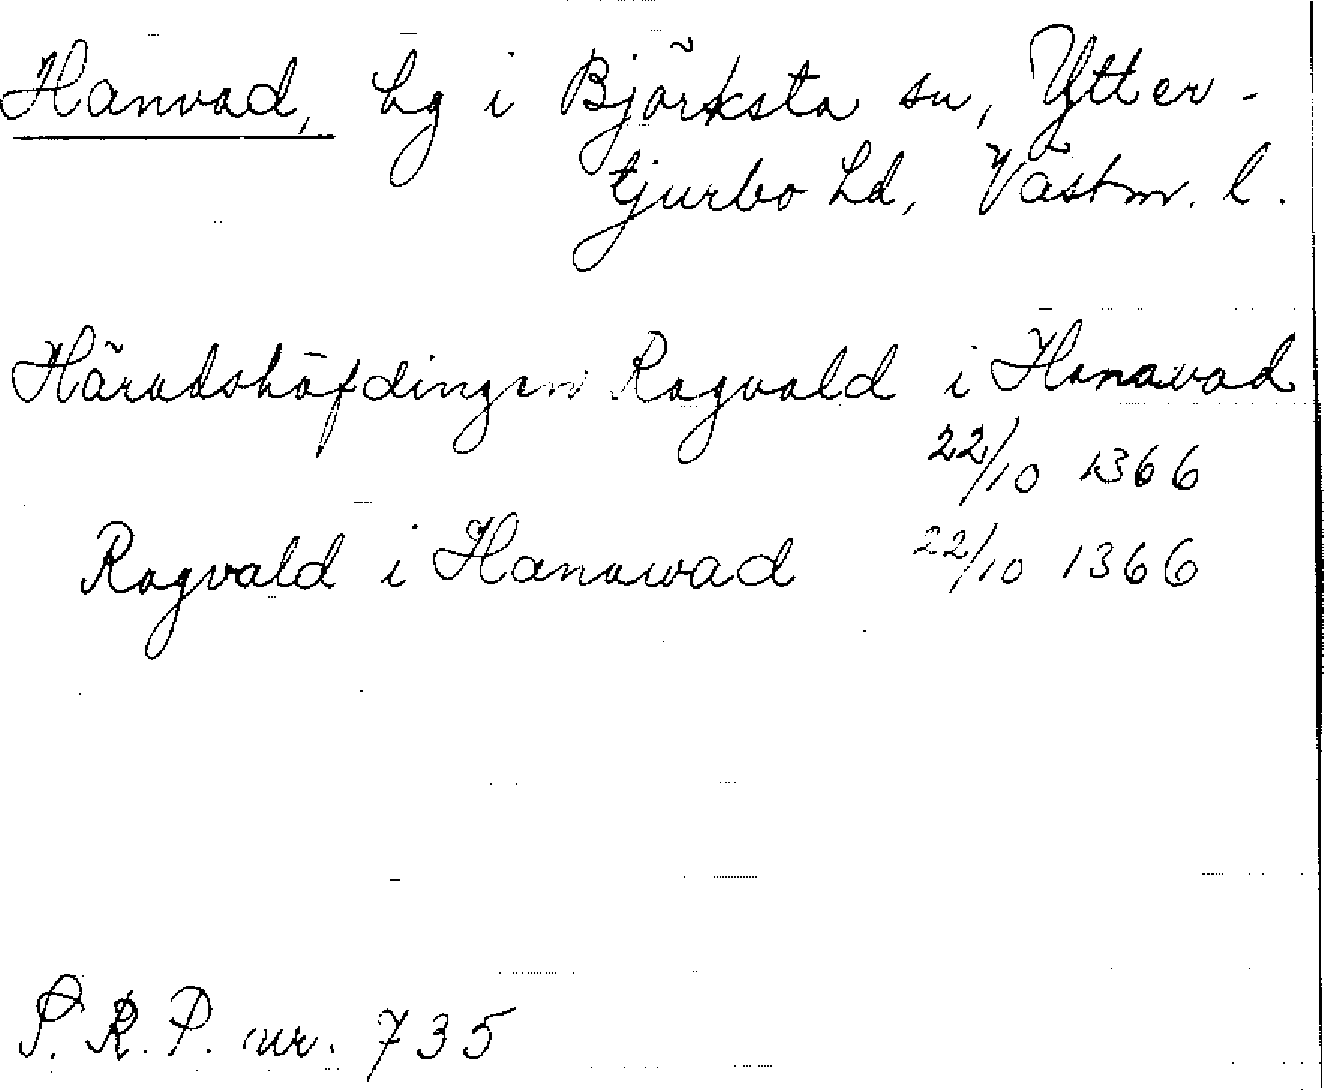 Hanvad, hg i Björksta sn, Ytter-
tjurbo hd, Västm. l.
Häradshöfdingen Ragvald i Hanavad
22/10 1366
Ragvald i Hanawad 22/10 1366
S. R. P. nr. 735